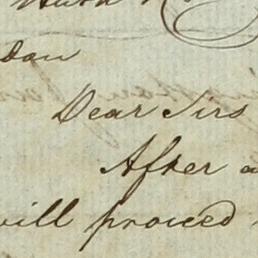 don
Dear Sirs
After a
will proceed